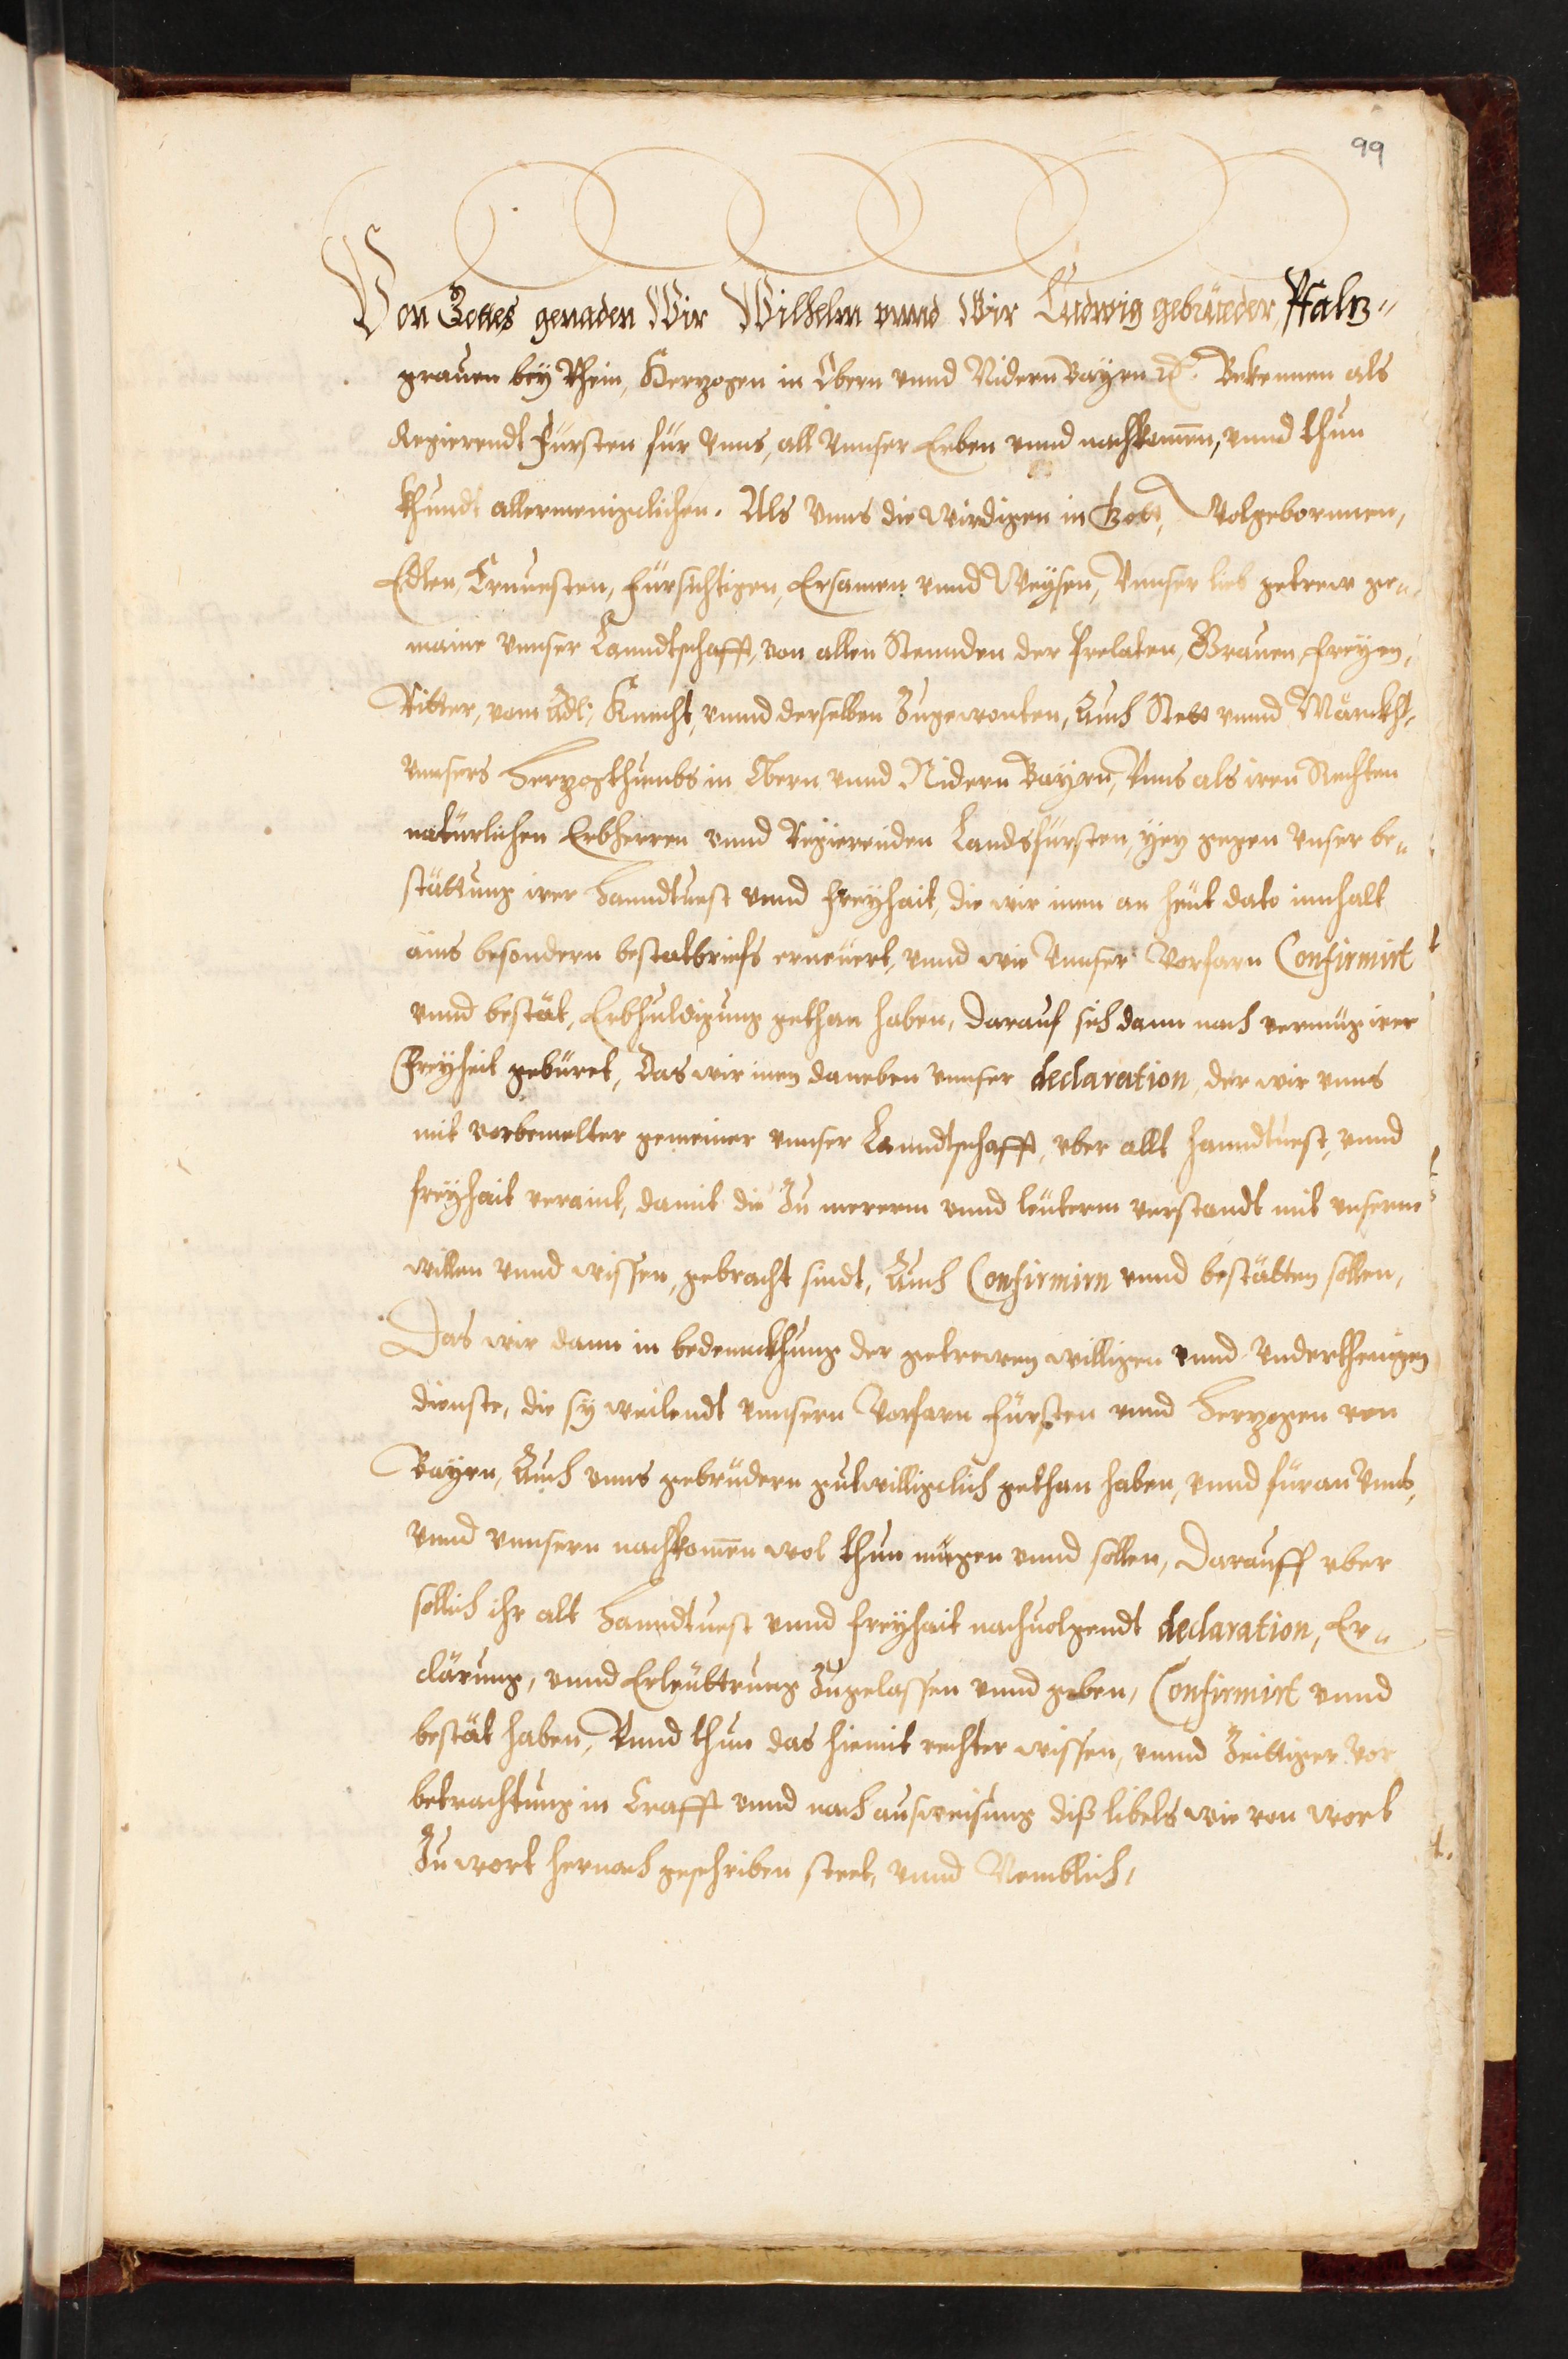 99
Von Gottes genaden Wir Wilhelm vnnd Wir Ludwig gebrüeder, Pfaltz-
grauen bey Rhein, Hertzogen in Obern vnnd Nidern Bayrn etc. Bekennen als
Regierendt Fürsten für vnns, all vnnser Erben vnnd nachkomen, vnnd thun
khundt allermenigclichen. Als vnns die wirdigen in Gott, Wolgebornnen,
Edlen, Ernuesten, Fürsichtigen, Ersamen vnnd Weysen, vnnser lieb getrew ge-
maine vnnser Lanndtschafft, von allen Stennden der Prelaten, Grauen, Freyen,
Ritter, vom Adl, Knecht, vnnd derselben Zugewonten, Auch Stett vnnd Märckht,
vnnsers Hertzogthumbs in Obern vnnd Nidern Bayrn, Vnns als iren Rechten
natürlichen Erbherren vnnd Regierenden Landsfürsten, yetz gegen vnser be-
stättung irer Hanndtuest vnnd freyhait, die wir inen an heut dato innhalt
ains besondern bestatbriefs erneuert, vnnd wie Vnnser Vorfarn Confirmirt
vnnd bestät, Erbhuldigung gethan haben, darauf sich dann nach vermüg irer
Freyheit gebüret, Das wir inen daneben vnnser declaration, der wir vnns
mit vorbemelter gemeiner vnnser Lanndtschafft, vber allt hanndtuest, vnnd
freyhait veraint, damit die Zu mererm vnnd leüterm verstandt mit vnserm
willen vnnd wissen, gebracht sindt, Auch Confirmirn vnnd bestätten sollen,
Das wir dann in bedennckhung der getrewen willigen vnnd vnderthenigen
dienste, die sy weilendt vnnsern Vorfarn Fürsten vnnd Hertzogen von
Bayrn, Auch vnns gebrüdern gutwilligclich gethan haben, vnnd füran Vnns,
vnnd vnnsern nachkomen wol thun mügen vnnd sollen, Darauff vber
sollich ihr alt Hanndtuest vnnd freyhait nachuolgendt declaration, Er-
clärung, vnnd Erleüttrung Zugelassen vnnd geben, Confirmirt vnnd
bestät haben, Vnnd thun das hiemit rechter wissen, vnnd Zeittiger vor
betrachtung in Crafft vnnd nach ausweisung diß libels wie von wort
Zu wort hernach geschriben steet, vnnd Nemblich,